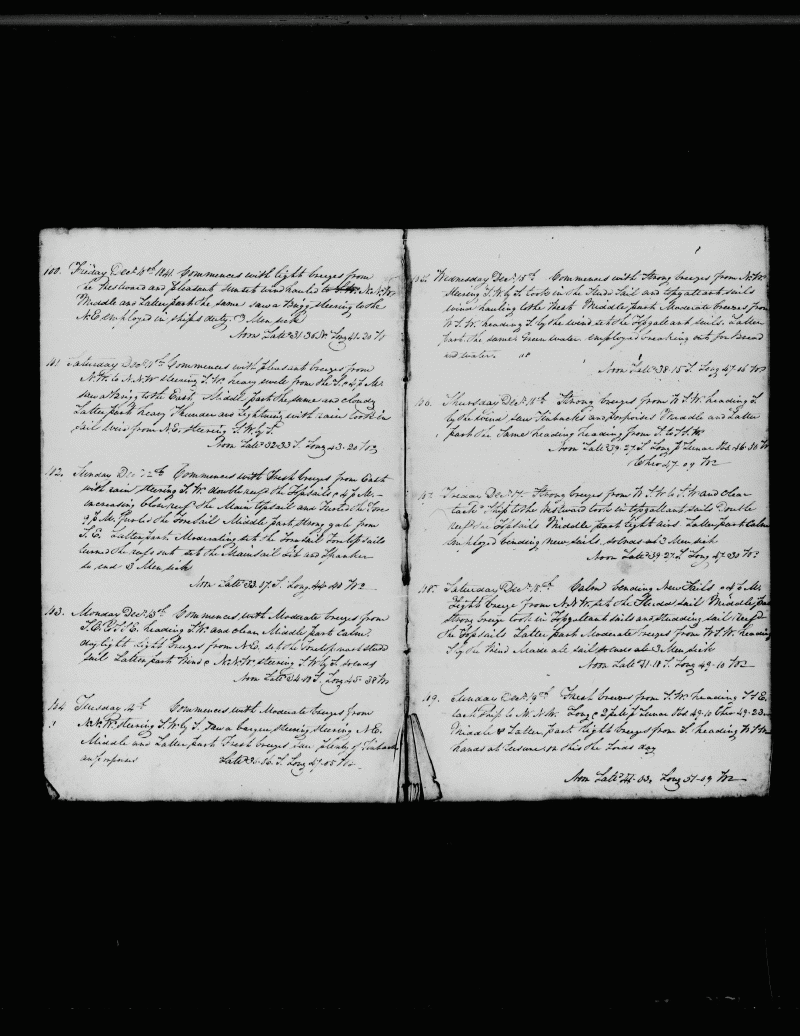 100. Friday Decr. 10th 1841 Commences with light breezes from
and pleasant wind hauled to N.N.W.
Middle and Latter part the same saw a Brigg steering to the
N.E. employed in ships duty. 3 Men sick
Noon Latd. 31-36 Long 41-20 W
101. Saturday Decr. 11th Commences with pleasant breezes from
N.W. to N.N.W. steering S.W. heavy swell from the S. at 4 P.M.
saw a Brig to the East. Middle part the same and cloudy
Latter part heavy Thunder and Lightning with rain took in
sail wind from N.E. steering S.W. by S.
Noon Latd. 32-33 S. Long 43-20 W
102. Sunday Decr. 12th Commences with Fresh breezes from East
with rain steering S.W. double reefd the Topsails at 4 P.M.
increasing Close reefd the Main Topsail and Furled the Fore
9 P.M. furled the Foresail Middle part strong gale from
S.E. Latter part Moderating set the Foresail Fore Topsail
turned the reefs out set the Mainsail Jib and Spanker
so ends 3 Men sick
Noon Latd. 33-57 S. Long 44-40 W
103. Monday Decr. 13th Commences with Moderate breezes from
S.E. to S.S.E. heading S.W. and clear Middle part calm
day light light breezes from N.E. set the Foretopmast studd
sail Latter part Wind N.N.W. steering S.W. by S. so ends
Noon Latd. 34-18 S. Long 45-38 W
104 Tuesday 14th Commences with Moderate breezes from
N.N.W. steering S.W. by S. saw a barque steering N.E.
Middle and Latter part Fresh breezes saw plenty of Finbacks
and porpoises Latd. 36-36 S. Long 47-05 W
105. Wednesday Decr. 15th Commences with Strong breezes from N.N.W
steering S.W. by S. took in the Studd Sail and topgallant sails
wind hauling to the West Middle part Moderate breezes from
W.S.W. heading S. by the wind set the topgallant sails. Latter
part the same Green water employed breaking out for Bread
and water.
Noon Latd. 38-15 S. Long 47-16 W
106. Thursday Decr. 16th Strong breezes from W.S.W. heading S.
by the wind saw Finbacks and porpoises Middle and Latter
part the Same heading heading from S. to S.S.W.
Noon Latd. 39-27 S. Long p Lunar Obs 46-30 W
Chro 47-09 W
107. Friday Decr. 17th Strong breezes from W.S.W. to S.W. and clear
tackd Ship to the Westward took in topgallant sails Double
reefd the Topsails Middle part light airs Latter part Calm
employed bending new sails, so ends 3 Men sick
Noon Latd. 39-27 S. Long 47-30 W
108. Saturday Decr. 18th Calm bending New Sails at 6 P.M.
Light breeze from N.N.W. set the Studd sail Middle part
strong breeze took in topgallant sails and studding sail Reefd
the topsails Latter part Moderate breezes from W.S.W. heading
S. by the Wind Made all sail so ends 3 Men sick
Noon Latd. 41-18 S. Long 49-10 W
109. Sunday Decr. 19th Fresh breezes from S.W. heading S.S.E.
tack Ship to W.N.W. Long p Lunar Obs 49-10 Chro 49-23
Middle & Latter part light breezes from S. heading W.S.W
hands at leisure on this the Lords day
Noon Latd. 41-03 Long 51-09 W